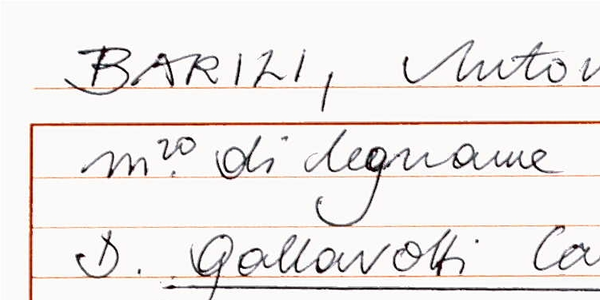 BARILI, Anton
m.ro di legname
D. Gallavotti Ca